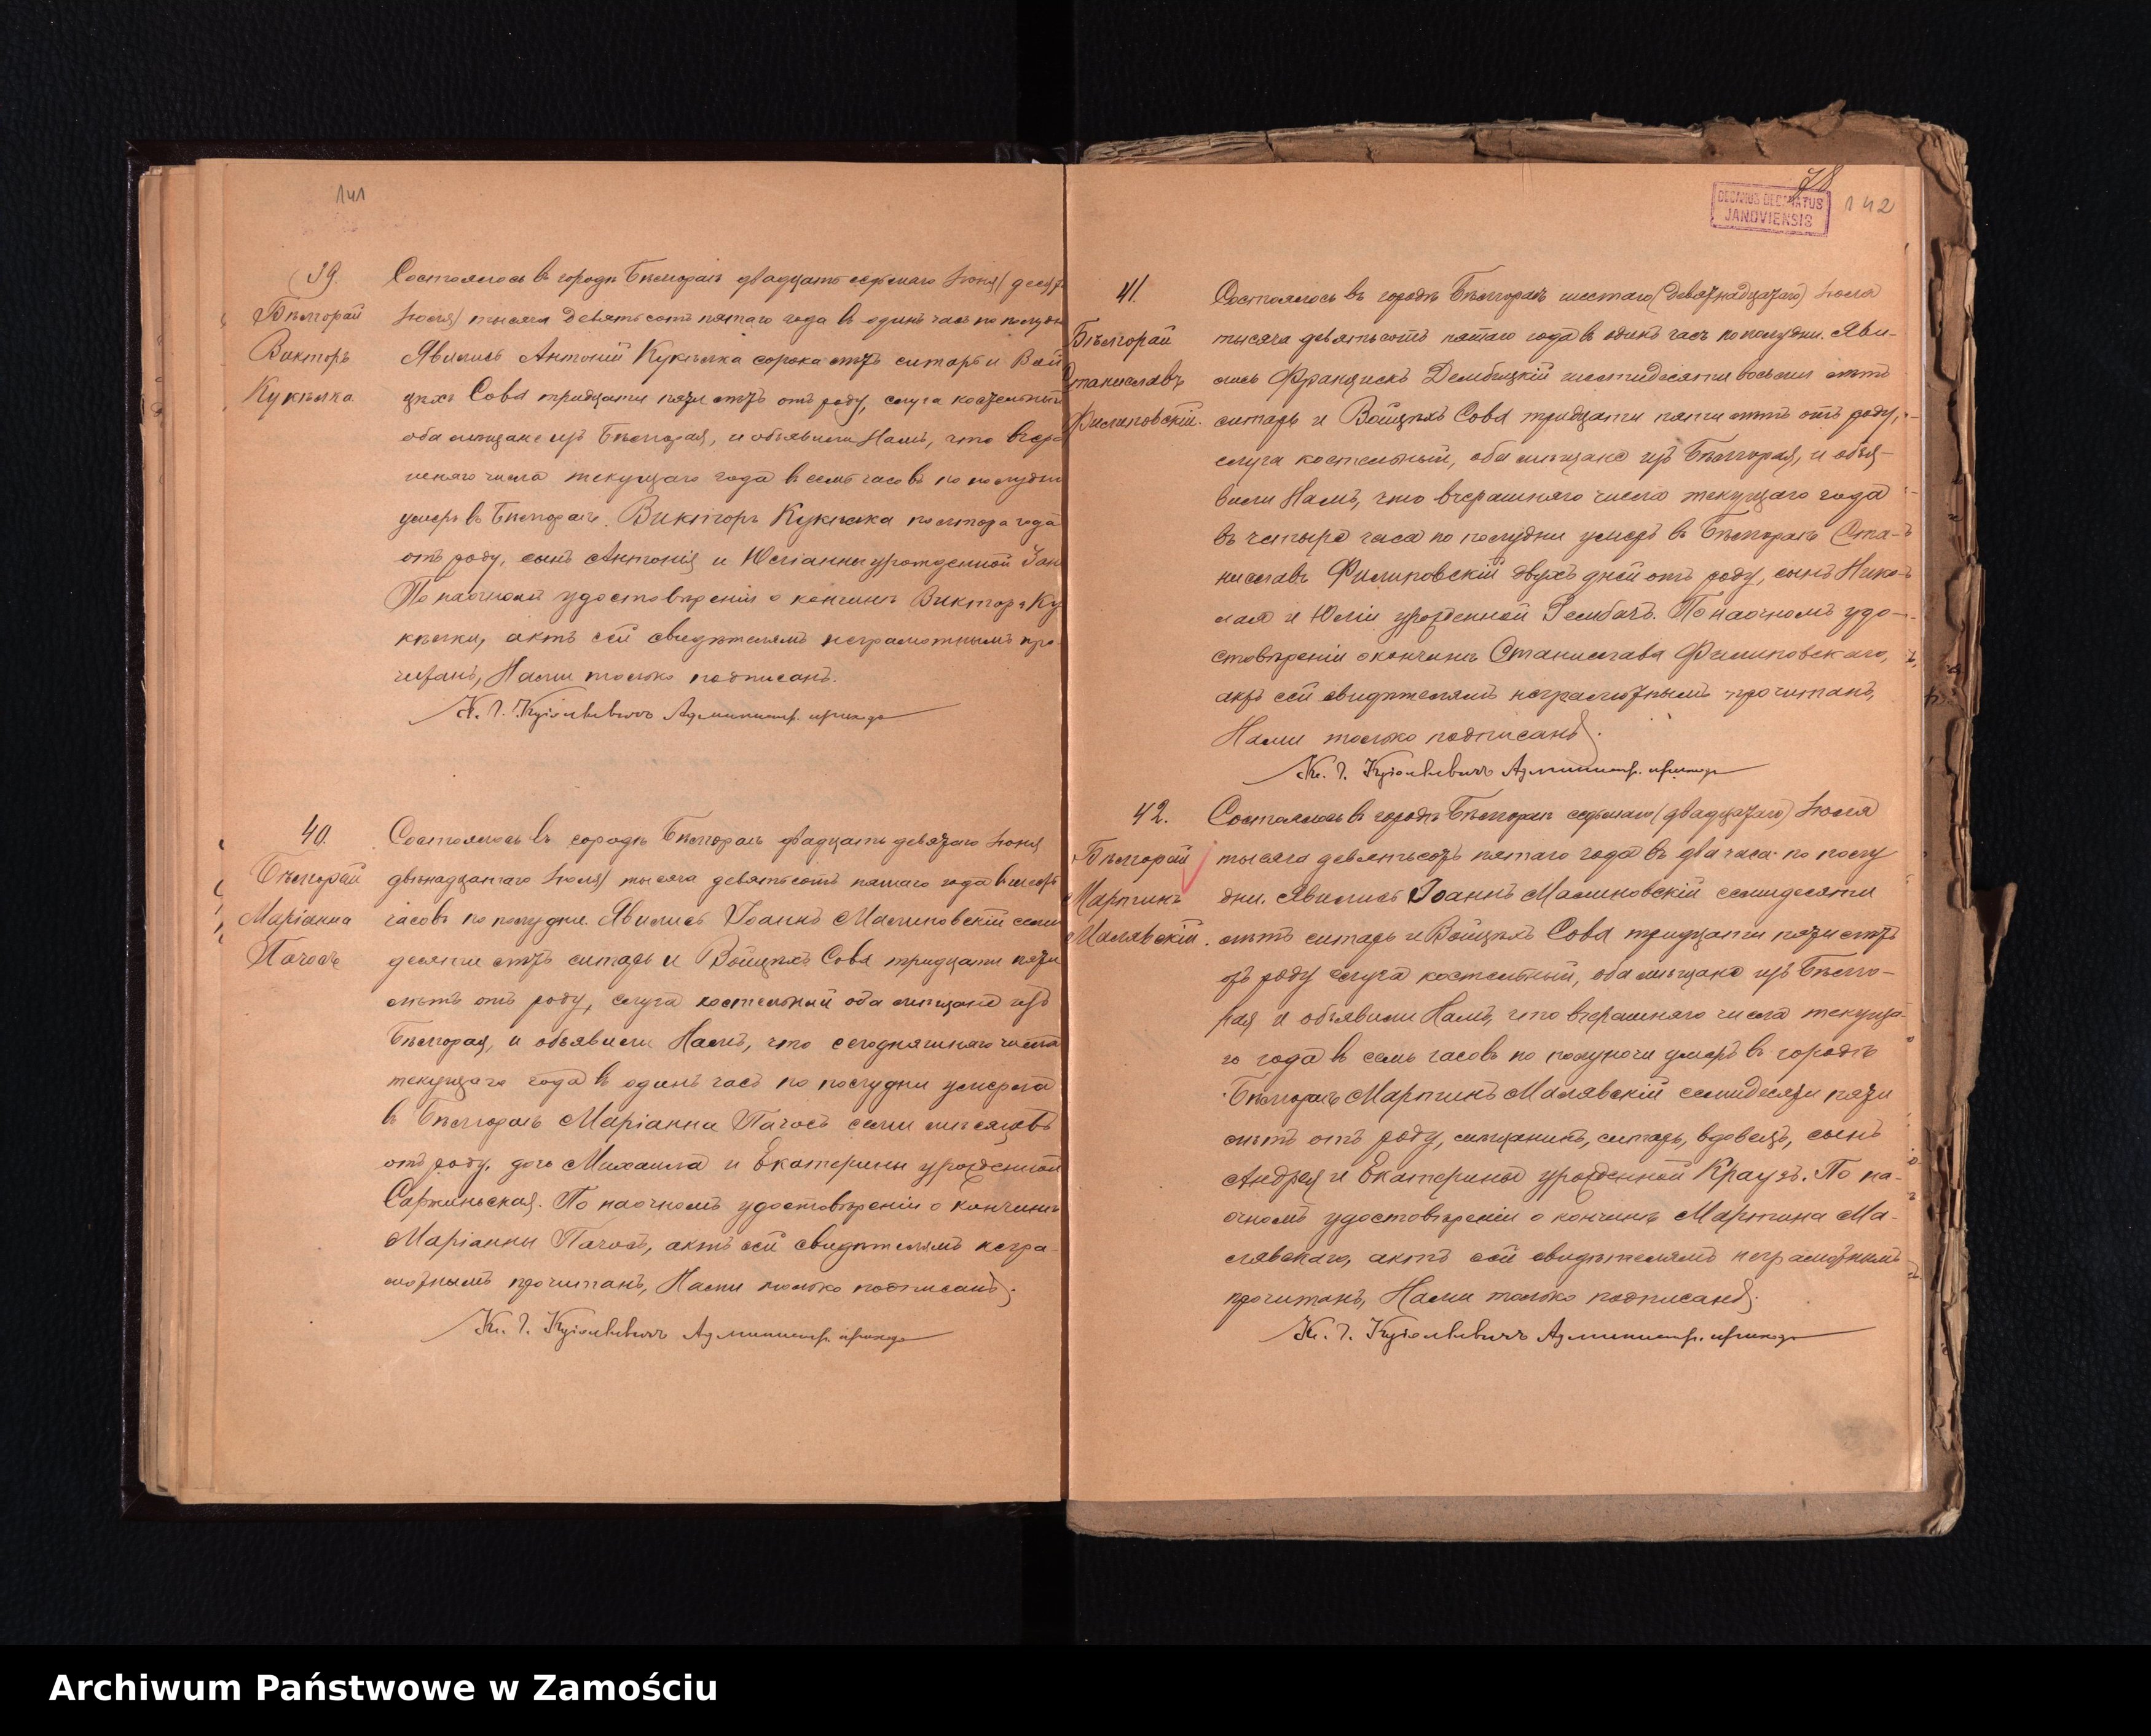 141
39.
Бѣлгорай
Викторъ
Кукѣлка
Состоялось въ городѣ Бѣлгораѣ двадцать седьмаго Іюня (деся
Іюля) тысяча девятьсотъ пятаго года въ одинъ часъ по полудн
Явились Антоній Кукѣлка сорока лѣтъ ситарь и Вой
цѣхъ Сова тридцати пяти лѣтъ отъ роду, слуга костельный
оба мѣщане изъ Бѣлгорая, и объявили Намъ, что вчера
шняго числа текущаго года въ семь часовъ по полудни
умеръ въ Бѣлгораѣ Викторъ Кукѣлка полтора года
отъ роду, сынъ Антонія и Юліанны урожденной
По наочномъ удостовѣреніи о кончинѣ Виктора Ку
кѣлки, актъ сей свидѣтелямъ неграмотнымъ про-
читанъ, Нами только подписанъ.
Администр. прихода
40.
Бѣлгорай
Маріанна
Пачосъ
Состоялось въ городѣ Бѣлгораѣ двадцать девятаго Іюня
двѣнадцатаго Іюля) тысяча девятьсотъ пятаго года въ шесть
часовъ по полудни. Явились Іоаннъ Малиновскій семи
десяти лѣтъ ситарь и Войцѣхъ Сова тридцати пяти
лѣтъ отъ роду, слуга костельный оба мѣщане изъ
Бѣлгорая, и объявили Намъ, что сегодняшняго числа
текущаго года въ одинъ часъ по полудни умерла
въ Бѣлгораѣ Маріанна Пачосъ семи мѣсяцевъ
отъ роду, дочь Михаила и Екатерины урожденной
По наочномъ удостовѣреніи о кончинѣ
Маріанны Пачосъ, актъ сей свидѣтелямъ негра-
мотнымъ прочитанъ, Нами только подписанъ.
Администр. прихода
78
142
DECANUS DECANATUS
JANOVIENSIS
41.
Бѣлгорай
Станиславъ
Филиповскій.
Состоялось въ городѣ Бѣлгораѣ шестаго (девятнадцатаго) Іюля
тысяча девятьсотъ пятаго года въ одинъ часъ по полудни. Яви-
лись Францискъ Дембицкій шестидесяти восьми лѣтъ
ситарь и Войцѣхъ Сова тридцати пяти лѣтъ отъ роду,
слуга костельный, оба мѣщане изъ Бѣлгорая, и объя-
вили Намъ, что вчерашняго числа текущаго года
въ четыре часа по полудни умеръ въ Бѣлгораѣ Ста-
ниславъ Филиповскій двухъ дней отъ роду, сынъ Нико-
лая и Юліи урожденной Зембачъ. По наочномъ удо-
стовѣреніи о кончинѣ Станислава Филиповскаго,
актъ сей свидѣтелямъ неграмотнымъ прочитанъ,
Нами только подписанъ.
Администр. прихода
42.
Бѣлгорай
Мартинъ
Малявскій.
Состоялось въ городѣ Бѣлгораѣ седьмаго (двадцатаго) Іюля
тысяча девятьсотъ пятаго года въ два часа по полу
дни. Явились Іоаннъ Малиновскій семидесяти
лѣтъ ситарь и Войцѣхъ Сова тридцати пяти лѣтъ
отъ роду слуга костельный, оба мѣщане изъ Бѣлго-
рая и объявили Намъ, что вчерашняго числа текуща-
го года въ семь часовъ по полуночи умеръ въ городѣ
Бѣлгораѣ Мартинъ Малявскій семидесяти пяти
лѣтъ отъ роду, мѣщанинъ, ситарь, вдовецъ, сынъ
Андрея и Екатерины урожденной Краузъ. По на-
очномъ удостовѣреніи о кончинѣ Мартина Ма-
лявскаго, актъ сей свидѣтелямъ неграмотнымъ
прочитанъ, Нами только подписанъ.
Администр. прихода
Archiwum Państwowe w Zamościu